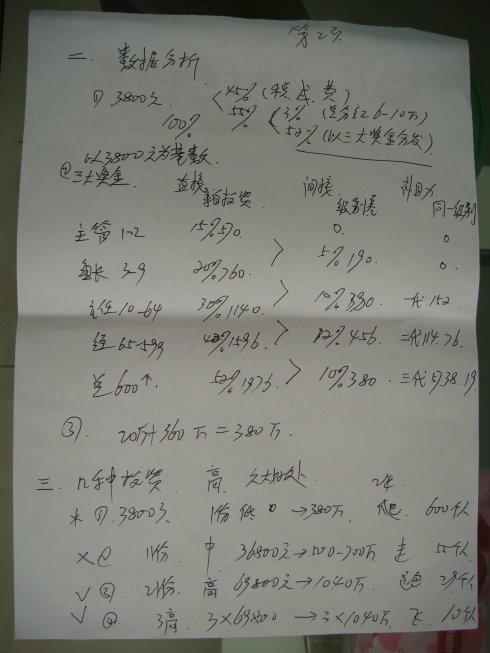 第2页
二、数据分析
① 3800元 45% (税 成 费)
100% 55% 3% (总分红6-10万)
52% (以三大奖金分发)
以3800元为基数
② 三大奖金 直接 间接 补助
投资 级别差 同一级别
主管 1-2 15% 570. 0. 0
组长 3-9 20% 760 > 5% 190. 0.
主任 10-64 30% 1140 > 10% 380 一代 152
经 65-599 42% 1596 > 12% 456 二代 114.76.
总 600↑ 52% 1976 > 10% 380 三代 57.38.19
③. 20万+360万=380万.
三. 几种投资 高 大好处 2年
× ① 3800元 1份 低 →380万 爬 600个人
× ② 11份 中 36800元→500-700万 走 55个人
√ ③ 21份 高 69800元→1040万 跑 29个人
√ ④ 3高 3×69800 →3×1040万 飞 10个人